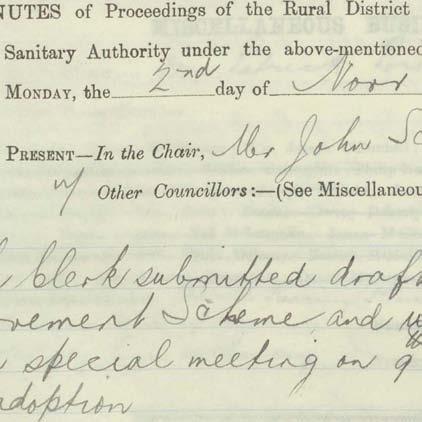 NUTES of Proceedings of the Rural District
Sanitary Authority under the above-mentioned
MONDAY, the 2nd day of Novr
PRESENT—In the Chair, Mr John
Other Councillors:—(See Miscellaneou
Clerk submitted draf
rovement Scheme and
special meeting on 9
adoption